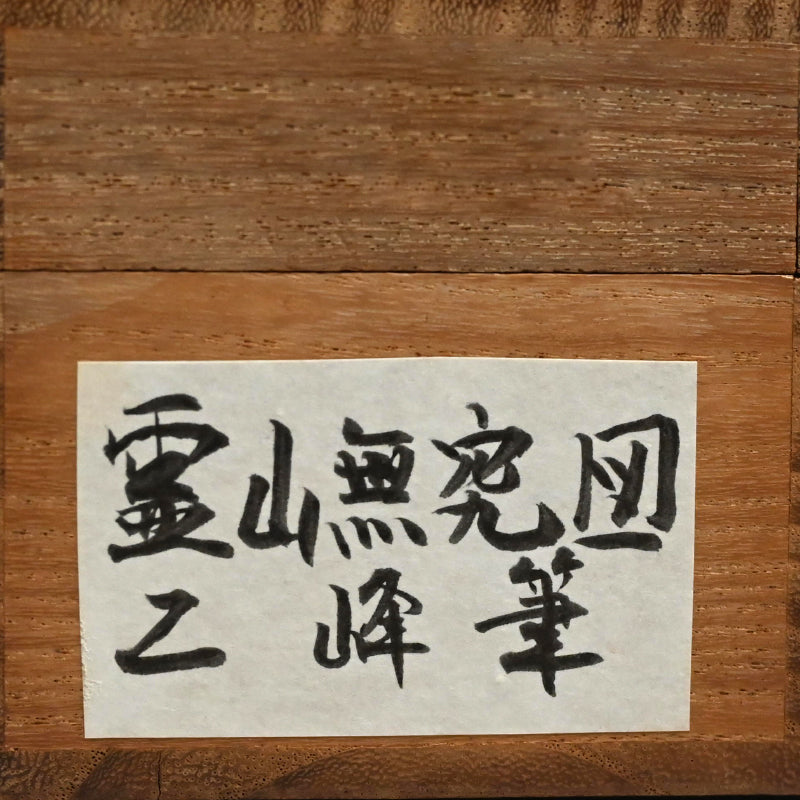 霊山無究図
乙峰筆